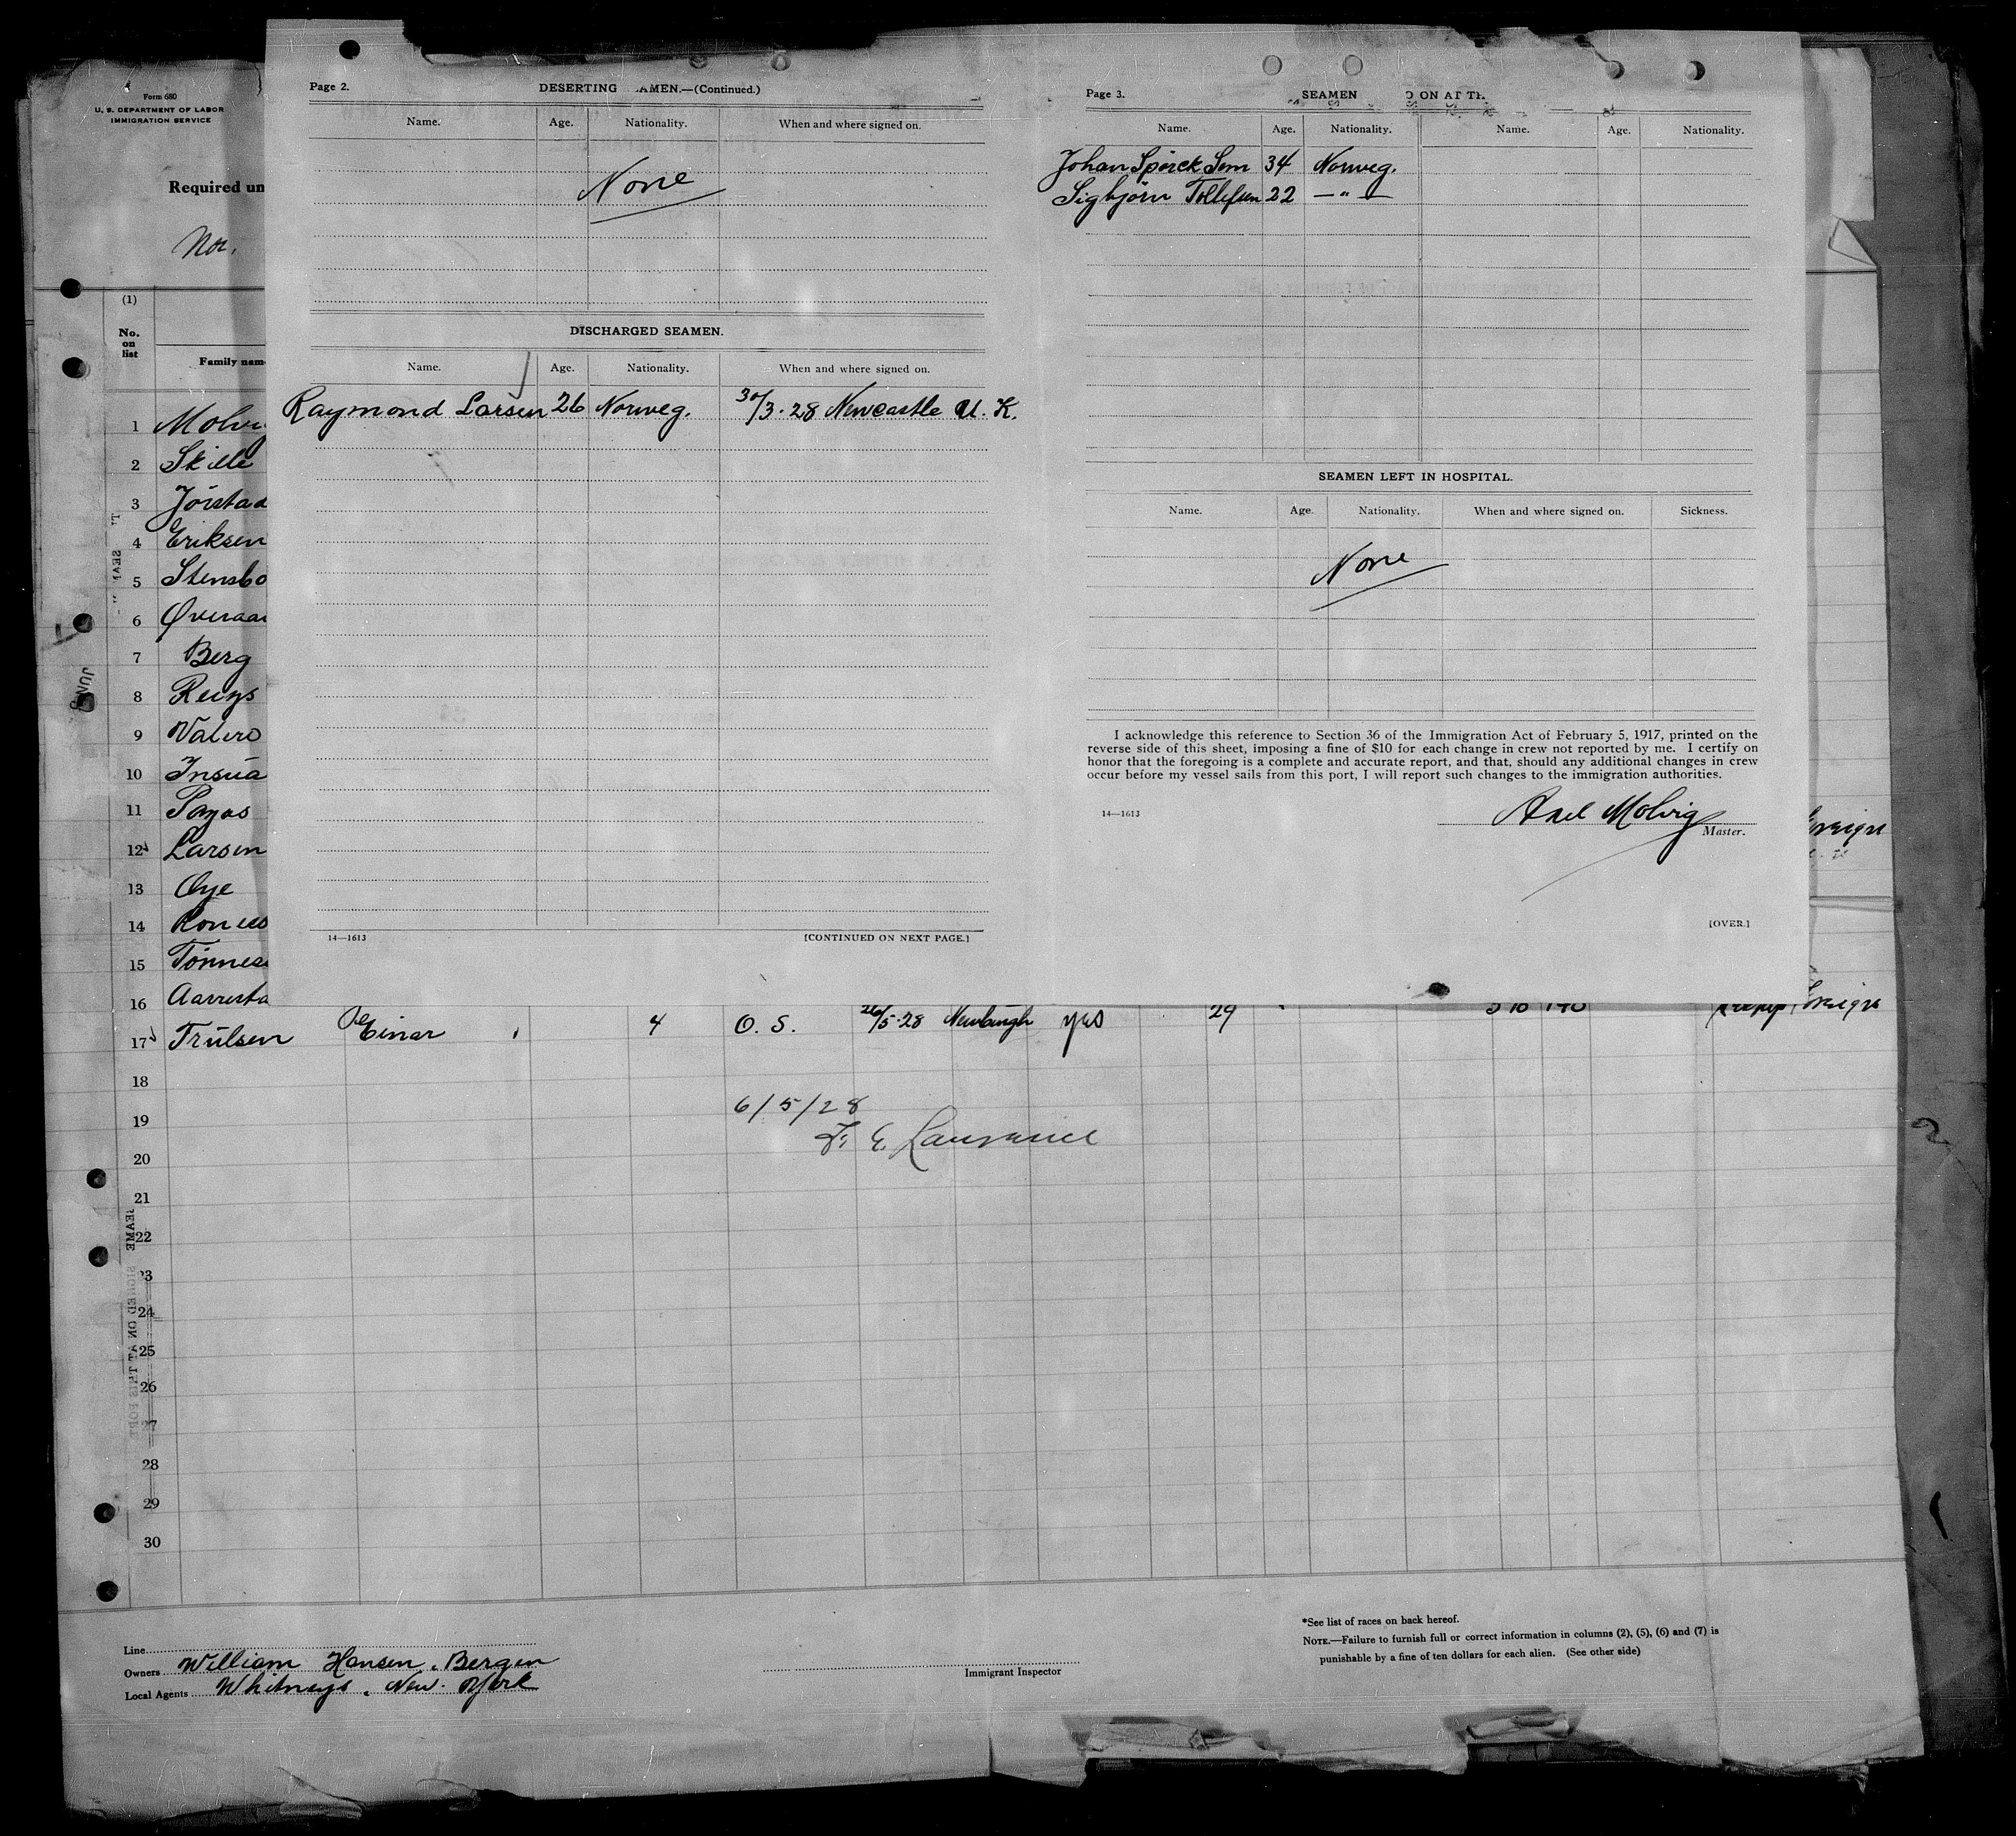 Form 680
U. S. DEPARTMENT OF LABOR
IMMIGRATION SERVICE
Required un
Nor.
(1)
No. on list
Family nam
1
2 Skille
3 Jörstad
4 Eriksen
5 Stensbo
6 Øveraa
7 Berg
8
9 Valero
10 Insua
11
12 Larsen
13 Øye
14
15 Tönnes
16
17 Trulsen Einar 4 O. S. 26/5-28 Newburgh yes 29
18
19 6/5/28
20
21
22
23
24
25
26
27
28
29
30
Line
Owners William Hansen, Bergen
Local Agents Whitneys, New York
Immigrant Inspector
*See list of races on back hereof.
NOTE.—Failure to furnish full or correct information in columns (2), (5), (6) and (7) is
punishable by a fine of ten dollars for each alien. (See other side)
Page 2.
DESERTING AMEN.—(Continued.)
Name. Age. Nationality. When and where signed on.
None
DISCHARGED SEAMEN.
Name. Age. Nationality. When and where signed on.
Raymond Larsen 26 Norweg. 30/3-28 Newcastle U. K.
14—1613 [CONTINUED ON NEXT PAGE.]
Page 3.
SEAMEN D ON AT TH
Name. Age. Nationality. Name. Age. Nationality.
Johan Spörck Sem 34 Norweg.
Sigbjörn Tollefsen 22 — " —
SEAMEN LEFT IN HOSPITAL.
Name. Age. Nationality. When and where signed on. Sickness.
None
I acknowledge this reference to Section 36 of the Immigration Act of February 5, 1917, printed on the
reverse side of this sheet, imposing a fine of $10 for each change in crew not reported by me. I certify on
honor that the foregoing is a complete and accurate report, and that, should any additional changes in crew
occur before my vessel sails from this port, I will report such changes to the immigration authorities.
14—1613
Axel Molvig
Master.
[OVER.]